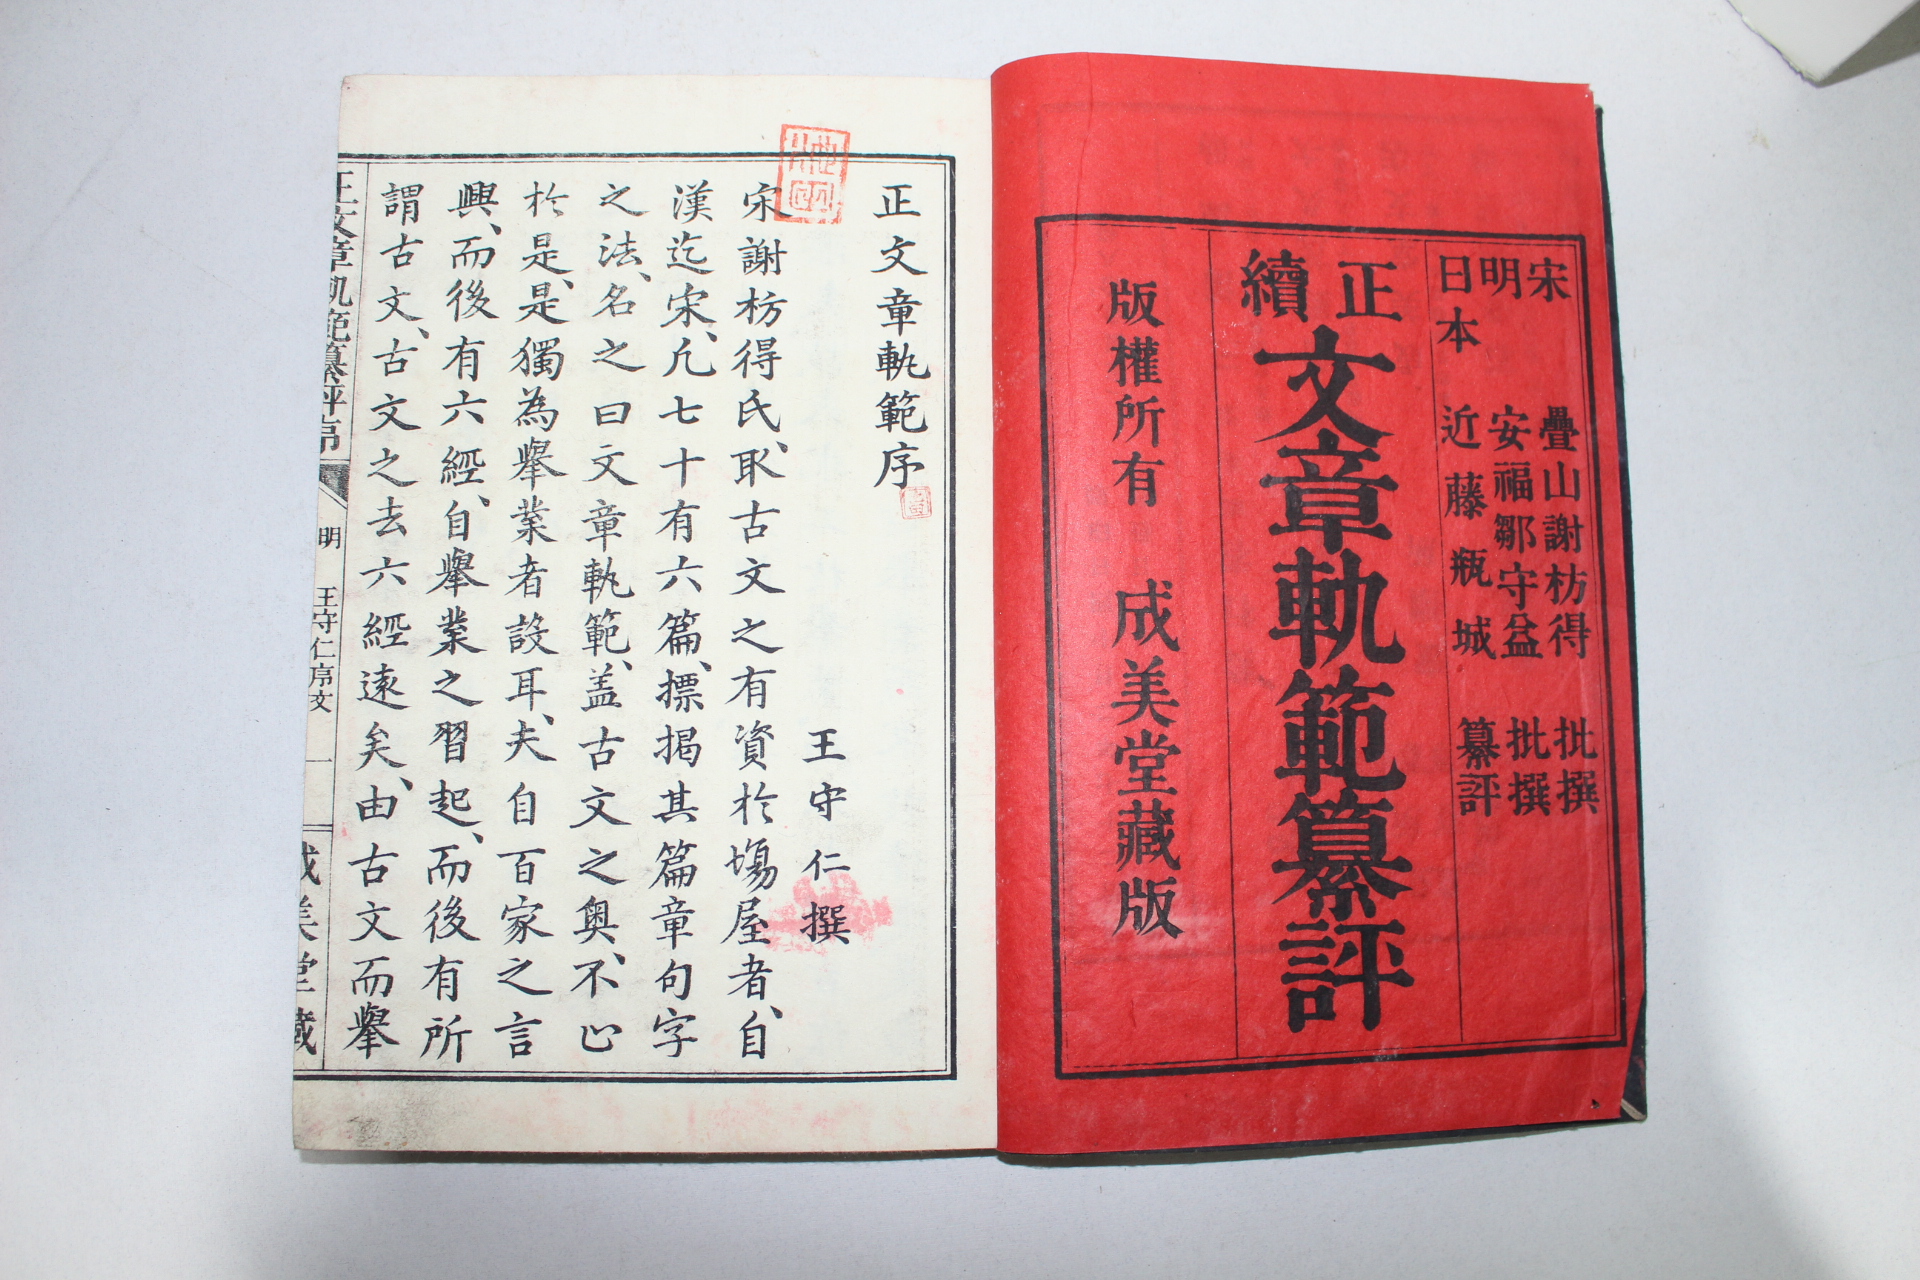 宋 疊山謝枋得 批撰
明 安福鄒守益 批撰
日本 近藤瓶城 纂評
正續 文章軌範纂評
版權所有 成美堂藏版
正文章軌範序
王守仁撰
宋謝枋得氏、取古文之有資於場屋者、自
漢迄宋、凡七十有六篇、摽揭其篇章句字
之法、名之曰文章軌範、盖古文之奥、不止
於是、是獨為舉業者設耳、夫自百家之言
興、而後有六經、自舉業之習起、而後有所
謂古文、古文之去六經遠矣、由古文而舉
正文章軌範纂評序 明 王守仁序文 一 成美堂藏